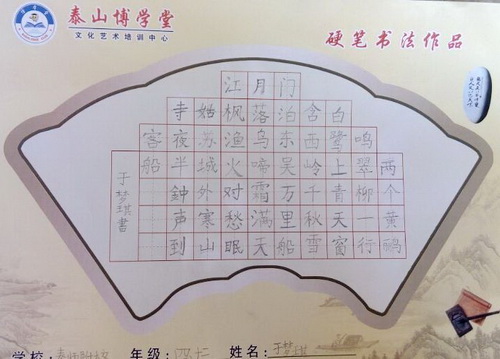 泰山博学堂
文化艺术培训中心
硬笔书法作品
两个黄鹂
鸣翠柳一行
白鹭上青天窗
含西岭千秋雪
门泊东吴万里船
月落乌啼霜满天
江枫渔火对愁眠
姑苏城外寒山
寺夜半鐘声到
客船
于梦琪書
学校：
年级：
姓名：于梦琪